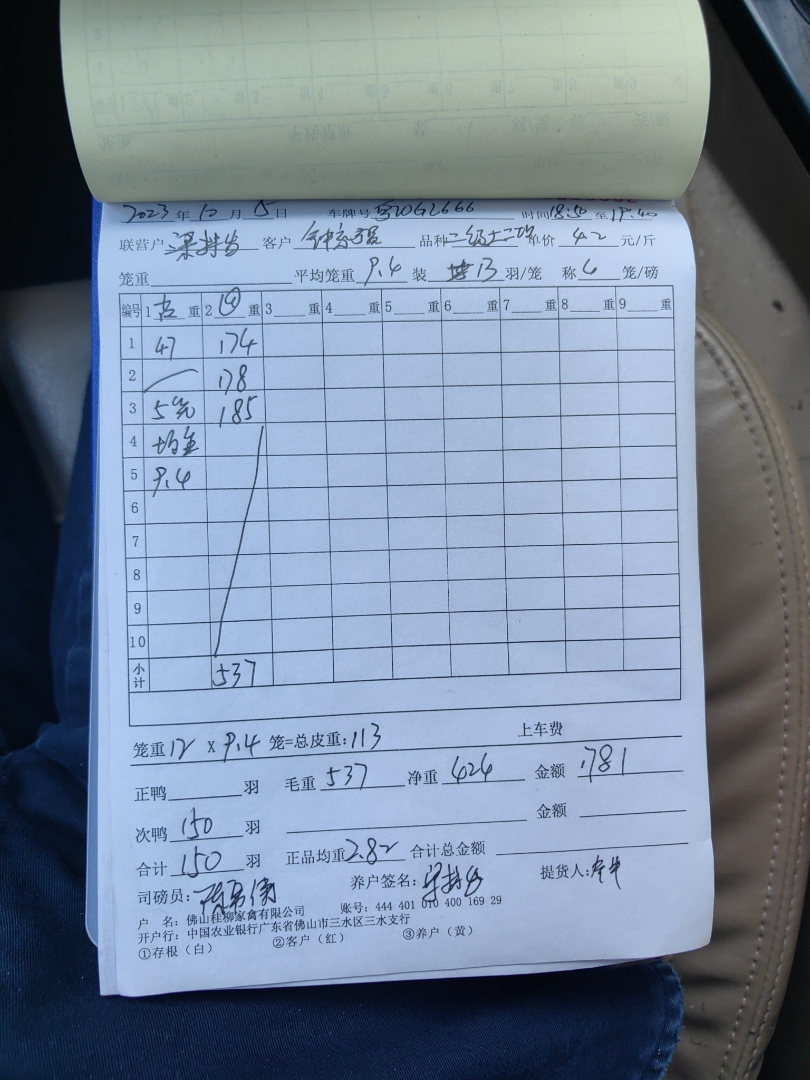 2023年12月5日 车牌号 粤 时间18:50至19:40
联营户 梁持发 客户 品种 单价 4.2 元/斤
笼重 平均笼重 9.4 装 13 羽/笼 称 6 笼/磅
编号 1 重 2 重 3 重 4 重 5 重 6 重 7 重 8 重 9 重
1 47 174
2 178
3 5笼 185
4 均重
5 9.4
6
7
8
9
10
小计 537
笼重 12 x 9.4 笼=总皮重:113 上车费
正鸭 羽 毛重 537 净重 424 金额 1781
次鸭 150 羽 金额
合计 150 羽 正品均重 2.82 合计总金额
司磅员: 养户签名: 梁持发 提货人:
户 名:佛山桂柳家禽有限公司 账号:444 401 010 400 169 29
开户行:中国农业银行广东省佛山市三水区三水支行
①存根(白) ②客户(红) ③养户(黄)